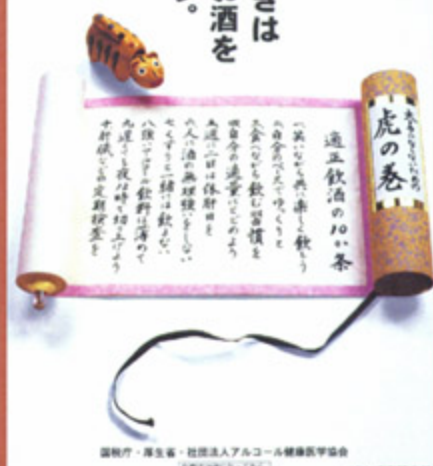 きは
お酒を
。
虎の巻
適正飲酒の10か条
一、笑いながら共に楽しく飲もう
二、自分のペースでゆっくりと
三、食べながら飲む習慣を
四、自分の適量にとどめよう
五、週に二日は休肝日を
六、人に酒の無理強いをしない
七、くすりと一緒には飲まない
八、強いアルコール飲料は薄めて
九、遅くも夜12時で切り上げよう
十、肝臓などの定期検査を
国税庁・厚生省・社団法人アルコール健康医学協会